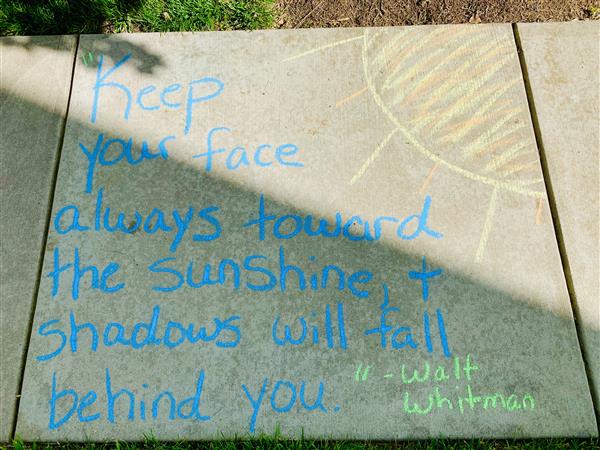 "Keep
your face
always toward
the sunshine, +
shadows will fall
behind you." - Walt
Whitman